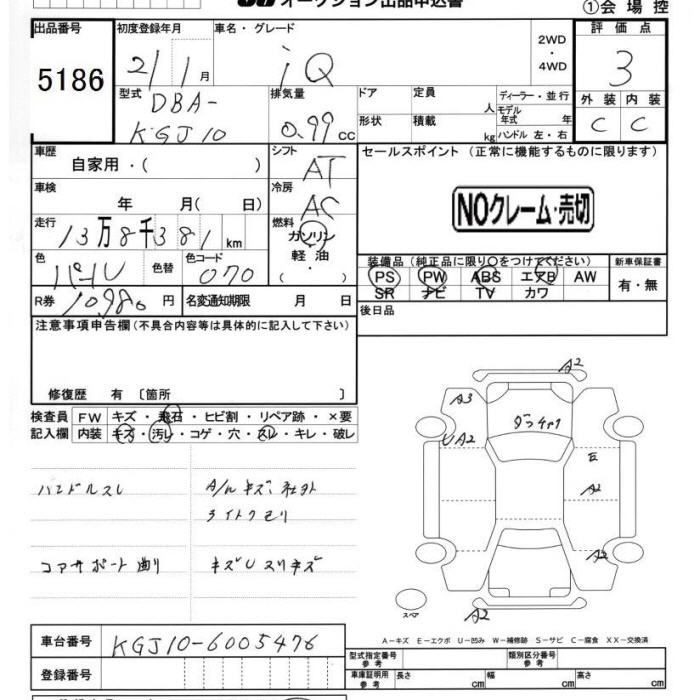 オークション出品申込書
①会場控
出品番号 初度登録年月 車名・グレード 評価点
5186 21/1月 iQ 2WD・4WD 3
型式 排気量 ドア 定員 人 ディーラー・並行 外装 内装
DBA-KGJ10 0.99cc 形状 積載 kg モデル年式 年 C C
ハンドル 左・右
車歴 シフト セールスポイント (正常に機能するものに限ります)
自家用・( ) AT
車検 冷房
年 月( 日) AC
NOクレーム・売切
走行 燃料
13万8千381km ガソリン・軽油・( )
色 色替 色コード 装備品(純正品に限り○をつけてください) 新車保証書
パール 070 PS PW ABS エアB AW 有・無
SR ナビ TV カワ
R券 10,980円 名変通知期限 月 日
後日品
注意事項申告欄(不具合内容等は具体的に記入して下さい)
修復歴 有 〔箇所 〕
検査員 FW キズ・飛石・ヒビ割・リペア跡・×要
記入欄 内装 キズ・汚レ・コゲ・穴・スレ・キレ・破レ
ハンドルスレ A/Wキズ、社外
ライトクモリ
コアサポート曲り キズUスリキズ
A2
A3
UA2
E
A2
A2
スペア
A2
A-キズ E-エクボ U-凹み W-補修跡 S-サビ C-腐食 XX-交換済
車台番号 KGJ10-6005476
登録番号
型式指定番号 参考 類別区分番号 参考
車庫証明用 参考 長さ cm 幅 cm 高さ cm